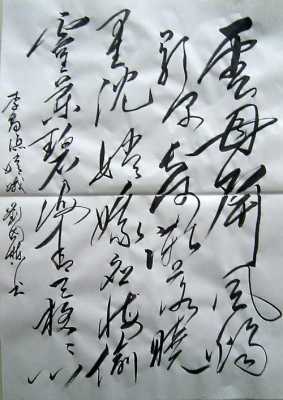 雲母屏風燭
影深長河漸落曉
星沈嫦娥應悔偷
靈藥碧海青天夜夜心
李商隱嫦娥 劉 书